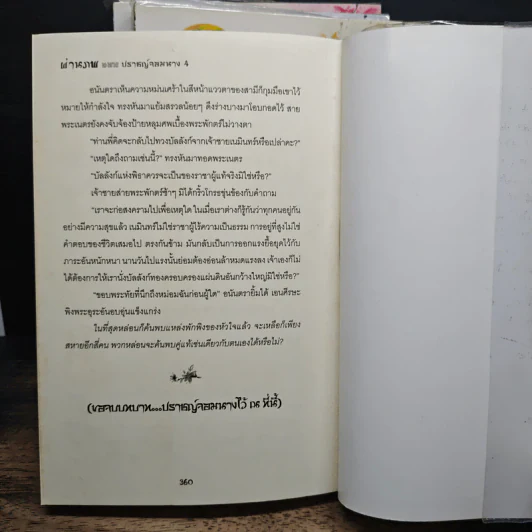 ผ่านภพ ๑๓๓ ปราชญ์จอมนาง 4
อนันตราเห็นความหม่นเศร้าในสีหน้าแววตาของสามีก็กุมมือเขาไว้
หมายให้กำลังใจ ทรงหันมาแย้มสรวลน้อยๆ ดึงร่างบางมาโอบกอดไว้ สาย
พระเนตรยังคงจับจ้องป้ายหลุมศพเบื้องพระพักตร์ไม่วางตา
"ท่านพี่คิดจะกลับไปทวงบัลลังก์จากเจ้าชายเนมินทร์หรือเปล่าคะ?"
"เหตุใดถึงถามเช่นนี้?" ทรงหันมาทอดพระเนตร
"บัลลังก์แห่งพิอาควรจะเป็นของราชาผู้แท้จริงมิใช่หรือ?"
เจ้าชายส่ายพระพักตร์ช้าๆ มิได้กริ้วโกรธขุ่นข้องกับคำถาม
"เราจะก่อสงครามไปเพื่อเหตุใด ในเมื่อเราต่างก็รู้กันว่าทุกคนอยู่กัน
อย่างมีความสุขแล้ว เนมินทร์ไม่ใช่ราชาผู้ไร้ความเป็นธรรม การอยู่ที่สูงไม่ใช่
คำตอบของชีวิตเสมอไป ตรงกันข้าม มันกลับเป็นการออกแรงยื้อยุดไว้กับ
ภาระอันหนักหนา นานวันไปแรงนั้นย่อมต้องอ่อนล้าหมดแรงลง เจ้าเองก็ไม่
ได้ต้องการให้เรานั่งบัลลังก์ทองครอบครองแผ่นดินอันกว้างใหญ่มิใช่หรือ?"
"ขอบพระทัยที่นึกถึงหม่อมฉันก่อนผู้ใด" อนันตรายิ้มได้ เอนศีรษะ
พิงพระอุระอันอบอุ่นแข็งแกร่ง
ในที่สุดหล่อนก็ค้นพบแหล่งพักพิงของหัวใจแล้ว จะเหลือก็เพียง
สหายอีกสี่คน พวกหล่อนจะค้นพบคู่แท้เช่นเดียวกับตนเองได้หรือไม่?
(ขอจบบทบาท...ปราชญ์จอมนางไว้ ณ ที่นี้)
360